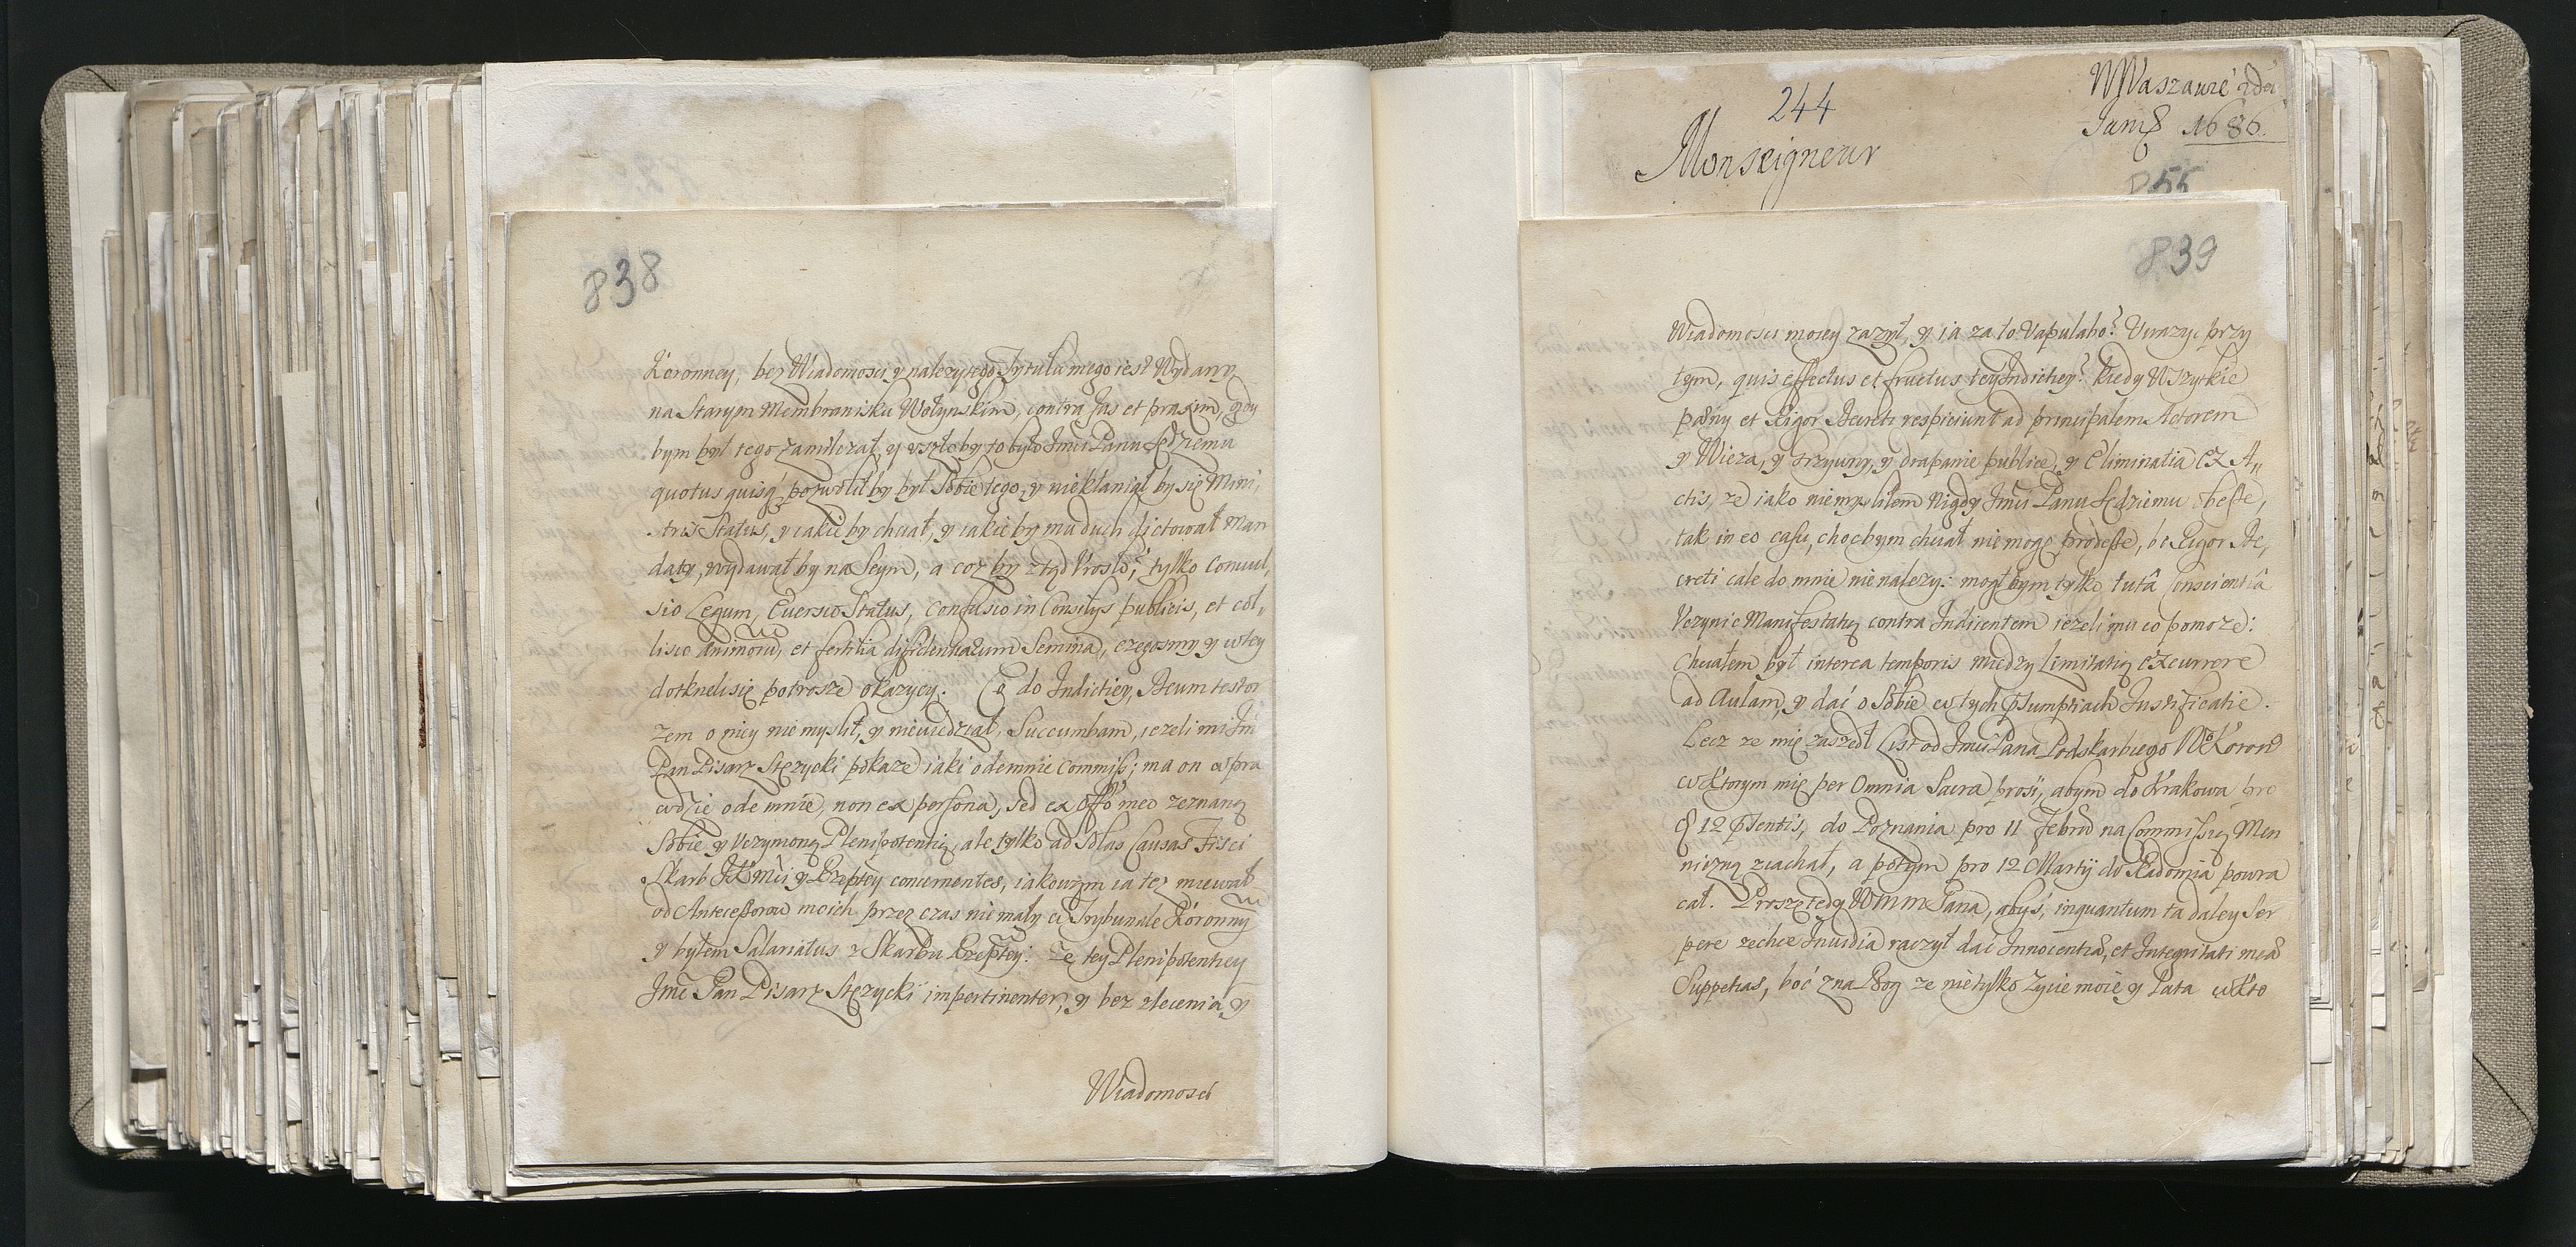 838
Koronney, bez Wiadomosci y nalezytego Tytulu mego iest Wydany
na Starym Membranisku Wołynskim, contra Jas et praxim, gdy
bym był tego zamilczał, y uszłoby to było Jmci Panu Sędziemu
quotus quisq pozwolił by był Sobie tego, y niekłaniał by się Mini,
stris Status, y iakie by chciał, y iakie by mu duch dictował Man
daty, wydawał by na Seym, a coz by ztąd Urosło; tylko Convul,
sio Legum, Eversio Status, confusio in Consilijs publicis, et col,
lisio Animoru, et fertilia diffidentiarum Semina, czegosmy y w tey
dotkneli się potrosze okazyey. Co do Indictiey, Deum testor
zem o niey nie myslił, y niewiedział, Succumbam, iezeli mi Jm
Pan Pisarz Stęzycki pokaze iaki odemnie Commiss; ma on w pra
wdzie odemnie, non ex persona, sed ex offo meo zeznaną
Sobie y Uczynioną Plenipotentią, ale tylko ad Solas Causas Fisci
Skarb JKMci y Rzeptey concernentes, iakowym ia tez miewał
od Antecessorow moich przez czas niemały w Trybunale Koronny
y byłem Salariatus z Skarbu Rzeptey: Ze tey Plenipotentiey
Jmc Pan Pisarz Stęzycki impertinenter, y bez zlecenia y
Wiadomosci
244
Monseigneur
W Waszawie
1686.
855
839
Wiadomosci moiey zazył, y ia za to Vapulabo? Uwazyc przy
tym, quis effectus et fructus tey Indictiey? kiedy Wszytkie
pœny et Rigor Decreti respiciunt ad principalem Actorem
y Wieza, y Grzywny, y drapanie publice, y Eliminatia Ex A,,
ctis, ze iako niemysliłem nigdy Jmci Panu Sędziemu obesse,
tak in eo casu, chocbym chciał nie mogę prodesse, bo Rigor De,
creti cale do mnie nienalezy: mogłbym tylko tutâ Conscientiâ
Uczynic Manifestatią contra Indicentem iezeli mu co pomoze:
Chciałem był interea temporis miedzy Limitatią excurrere
ad Aulam, y dać o Sobie w tych psumptiach Justificatie.
Lecz ze mię zaszedł List od Jmci Pana Podskarbiego WKoron
w ktorym mię per Omnia Sacra prosi, abym do Krakowa pro
12 psentis, do Poznania pro 11 Febru na Commissią Men
niczną ziachał, a potym pro 12 Martij do Radomia powra
cał. Proszę tedy WMMPana, abyś, inquantum ta daley Ser
pere zechce Invidia raczył dać Innocentiæ, et Integritati meæ
Suppetias, boć zna Bog ze nietylko Zycie moie y Lata w kto